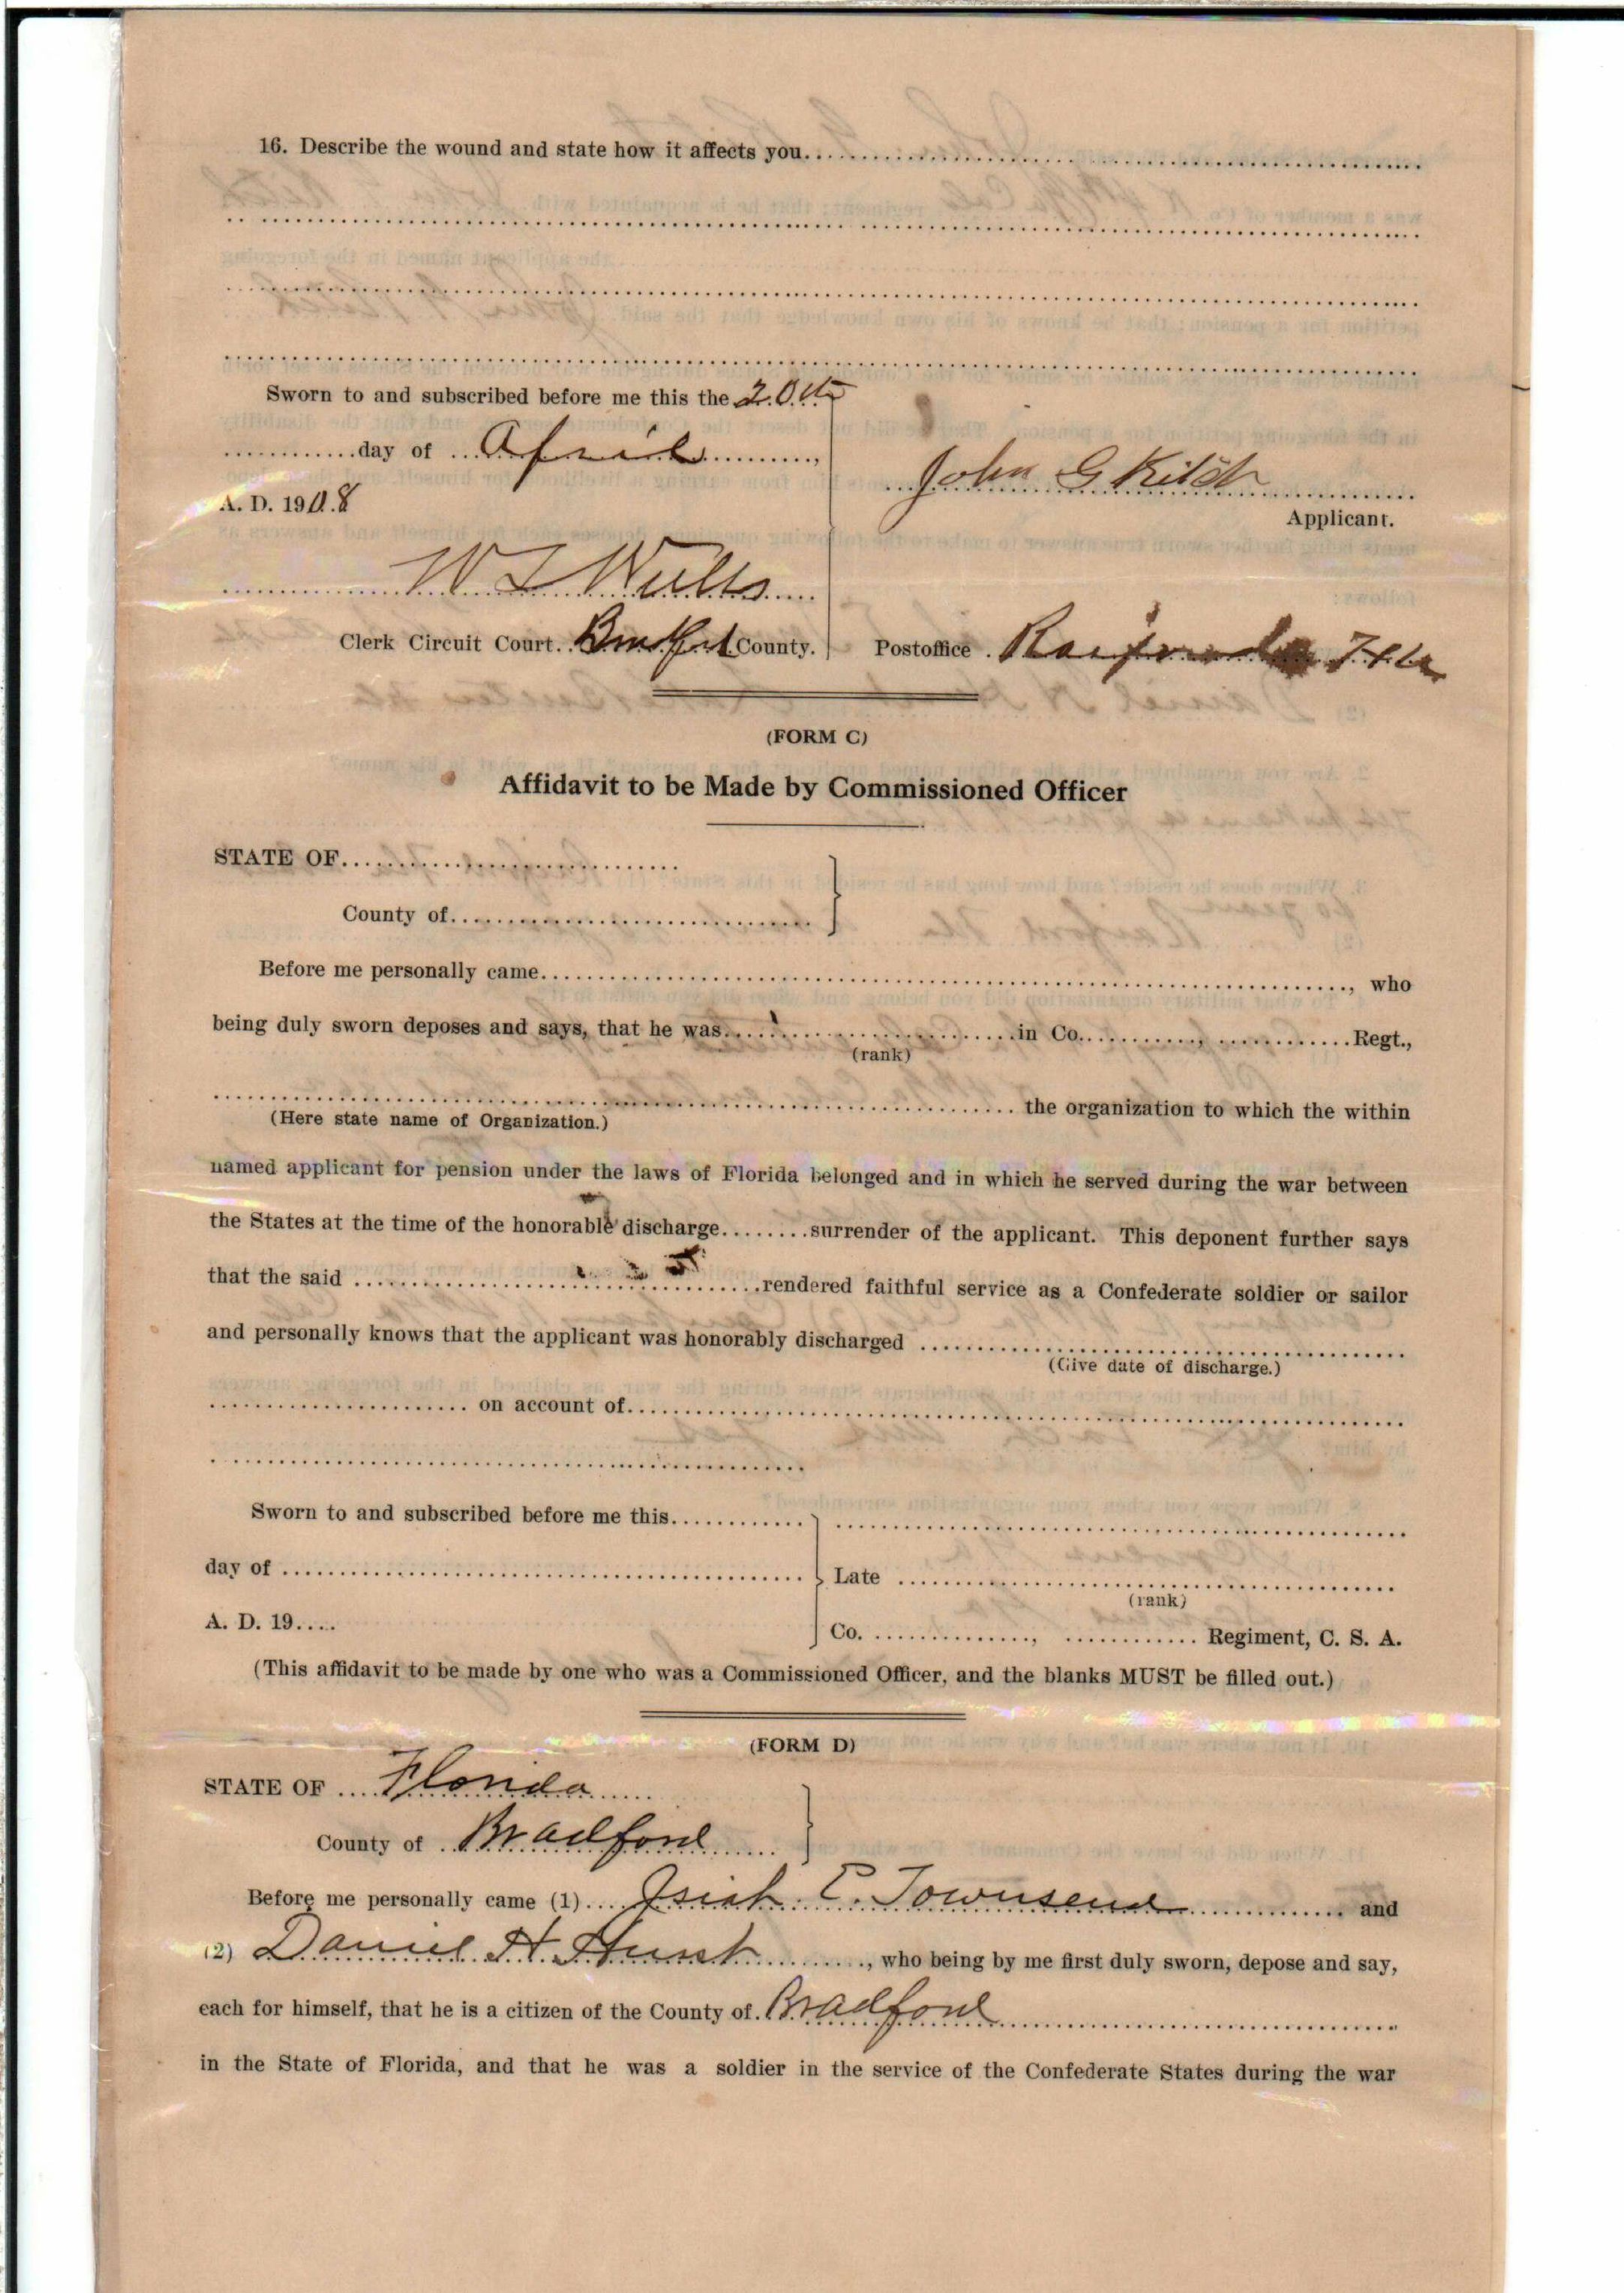 16. Describe the wound and state how it affects you
Sworn to and subscribed before me this the 20th
day of April,
A. D. 1908
John G Kitch
Applicant.
W L Wills
Clerk Circuit Court. Bradford County.
Postoffice Raiford Fla
(FORM C)
Affidavit to be Made by Commissioned Officer
STATE OF
County of
Before me personally came, who
being duly sworn deposes and says, that he was in Co., Regt.,
(rank)
the organization to which the within
(Here state name of Organization.)
named applicant for pension under the laws of Florida belonged and in which he served during the war between
the States at the time of the honorable discharge surrender of the applicant. This deponent further says
that the said rendered faithful service as a Confederate soldier or sailor
and personally knows that the applicant was honorably discharged
(Give date of discharge.)
on account of
Sworn to and subscribed before me this
day of
Late
(rank)
A. D. 19
Co. , Regiment, C. S. A.
(This affidavit to be made by one who was a Commissioned Officer, and the blanks MUST be filled out.)
(FORM D)
STATE OF Florida
County of Bradford
Before me personally came (1) Isiah E. Townsend and
(2) Daniel H. Hurst, who being by me first duly sworn, depose and say,
each for himself, that he is a citizen of the County of Bradford
in the State of Florida, and that he was a soldier in the service of the Confederate States during the war